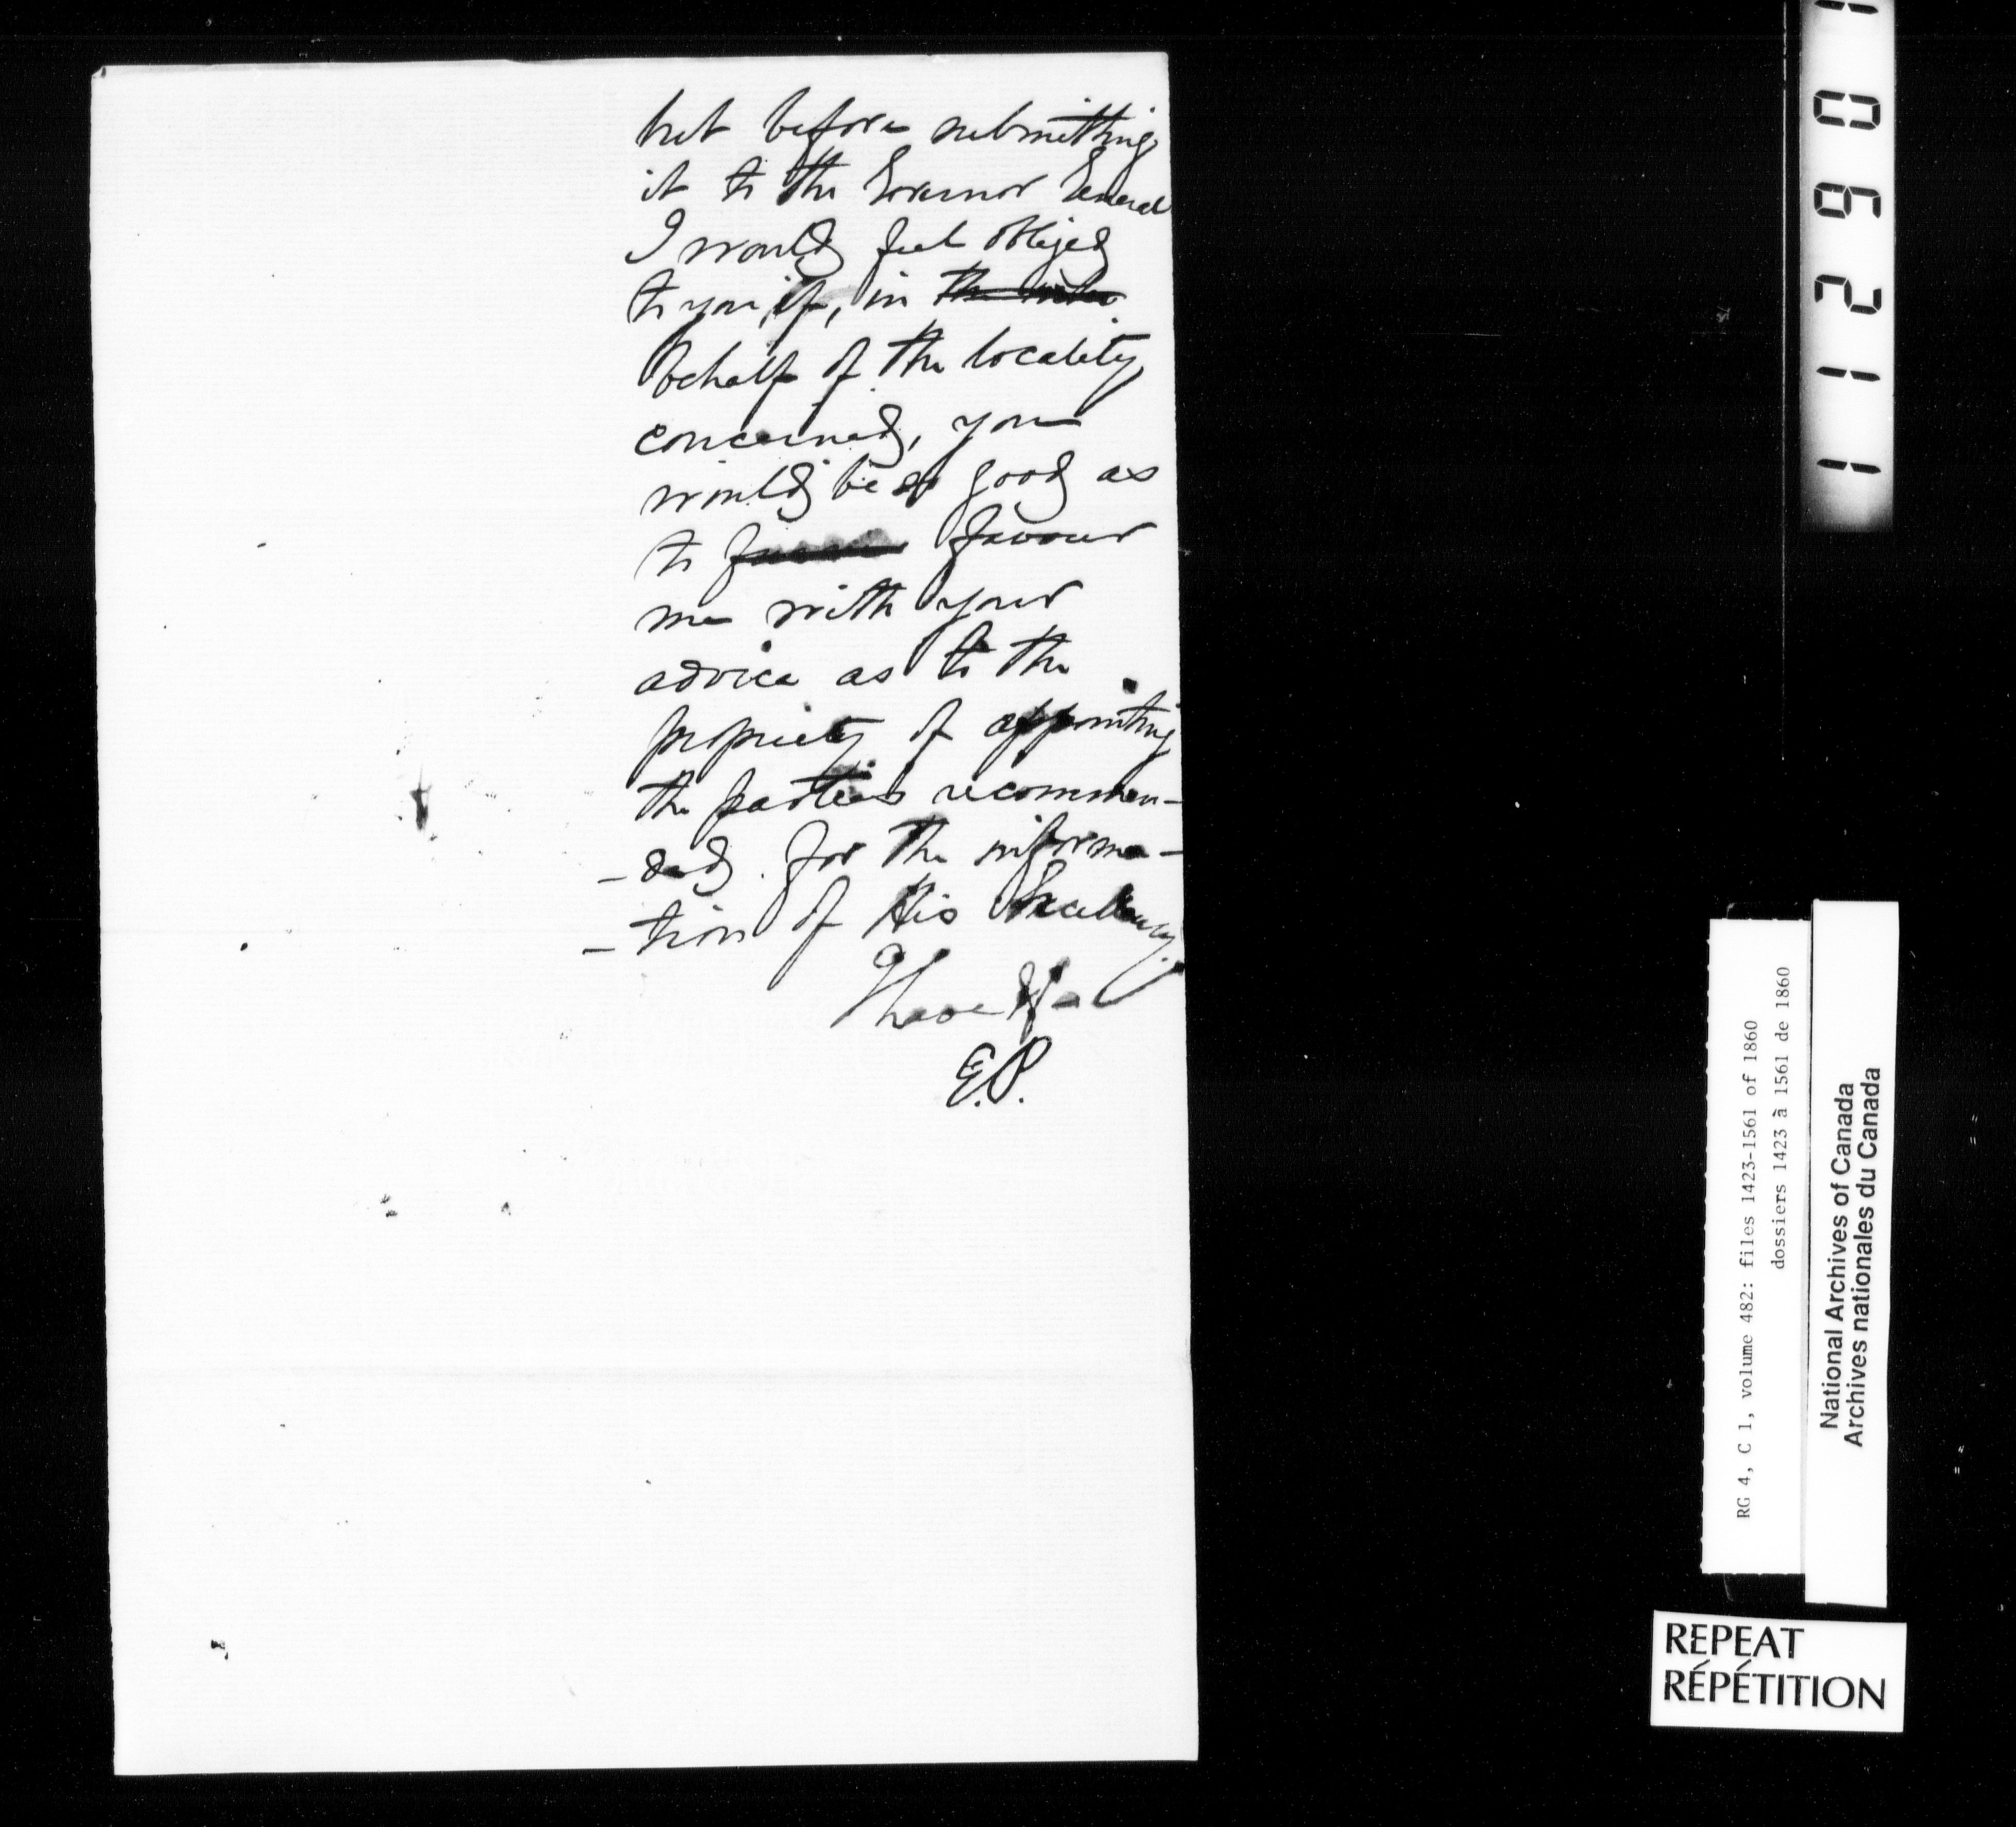 but before submitting
it to the Governor General
I would feel obliged
to you, if, in the
behalf of the locality
concerned, you
would be so good as
to favour
me with your
advice as to the
propriety of appointing
the parties recommen-
-ded. for the informa-
-tion of His Excellency.
I have &a
E.P.
112601
RG 4, C 1, volume 482: files 1423-1561 of 1860
dossiers 1423 à 1561 de 1860
National Archives of Canada
Archives nationales du Canada
REPEAT
RÉPÉTITION